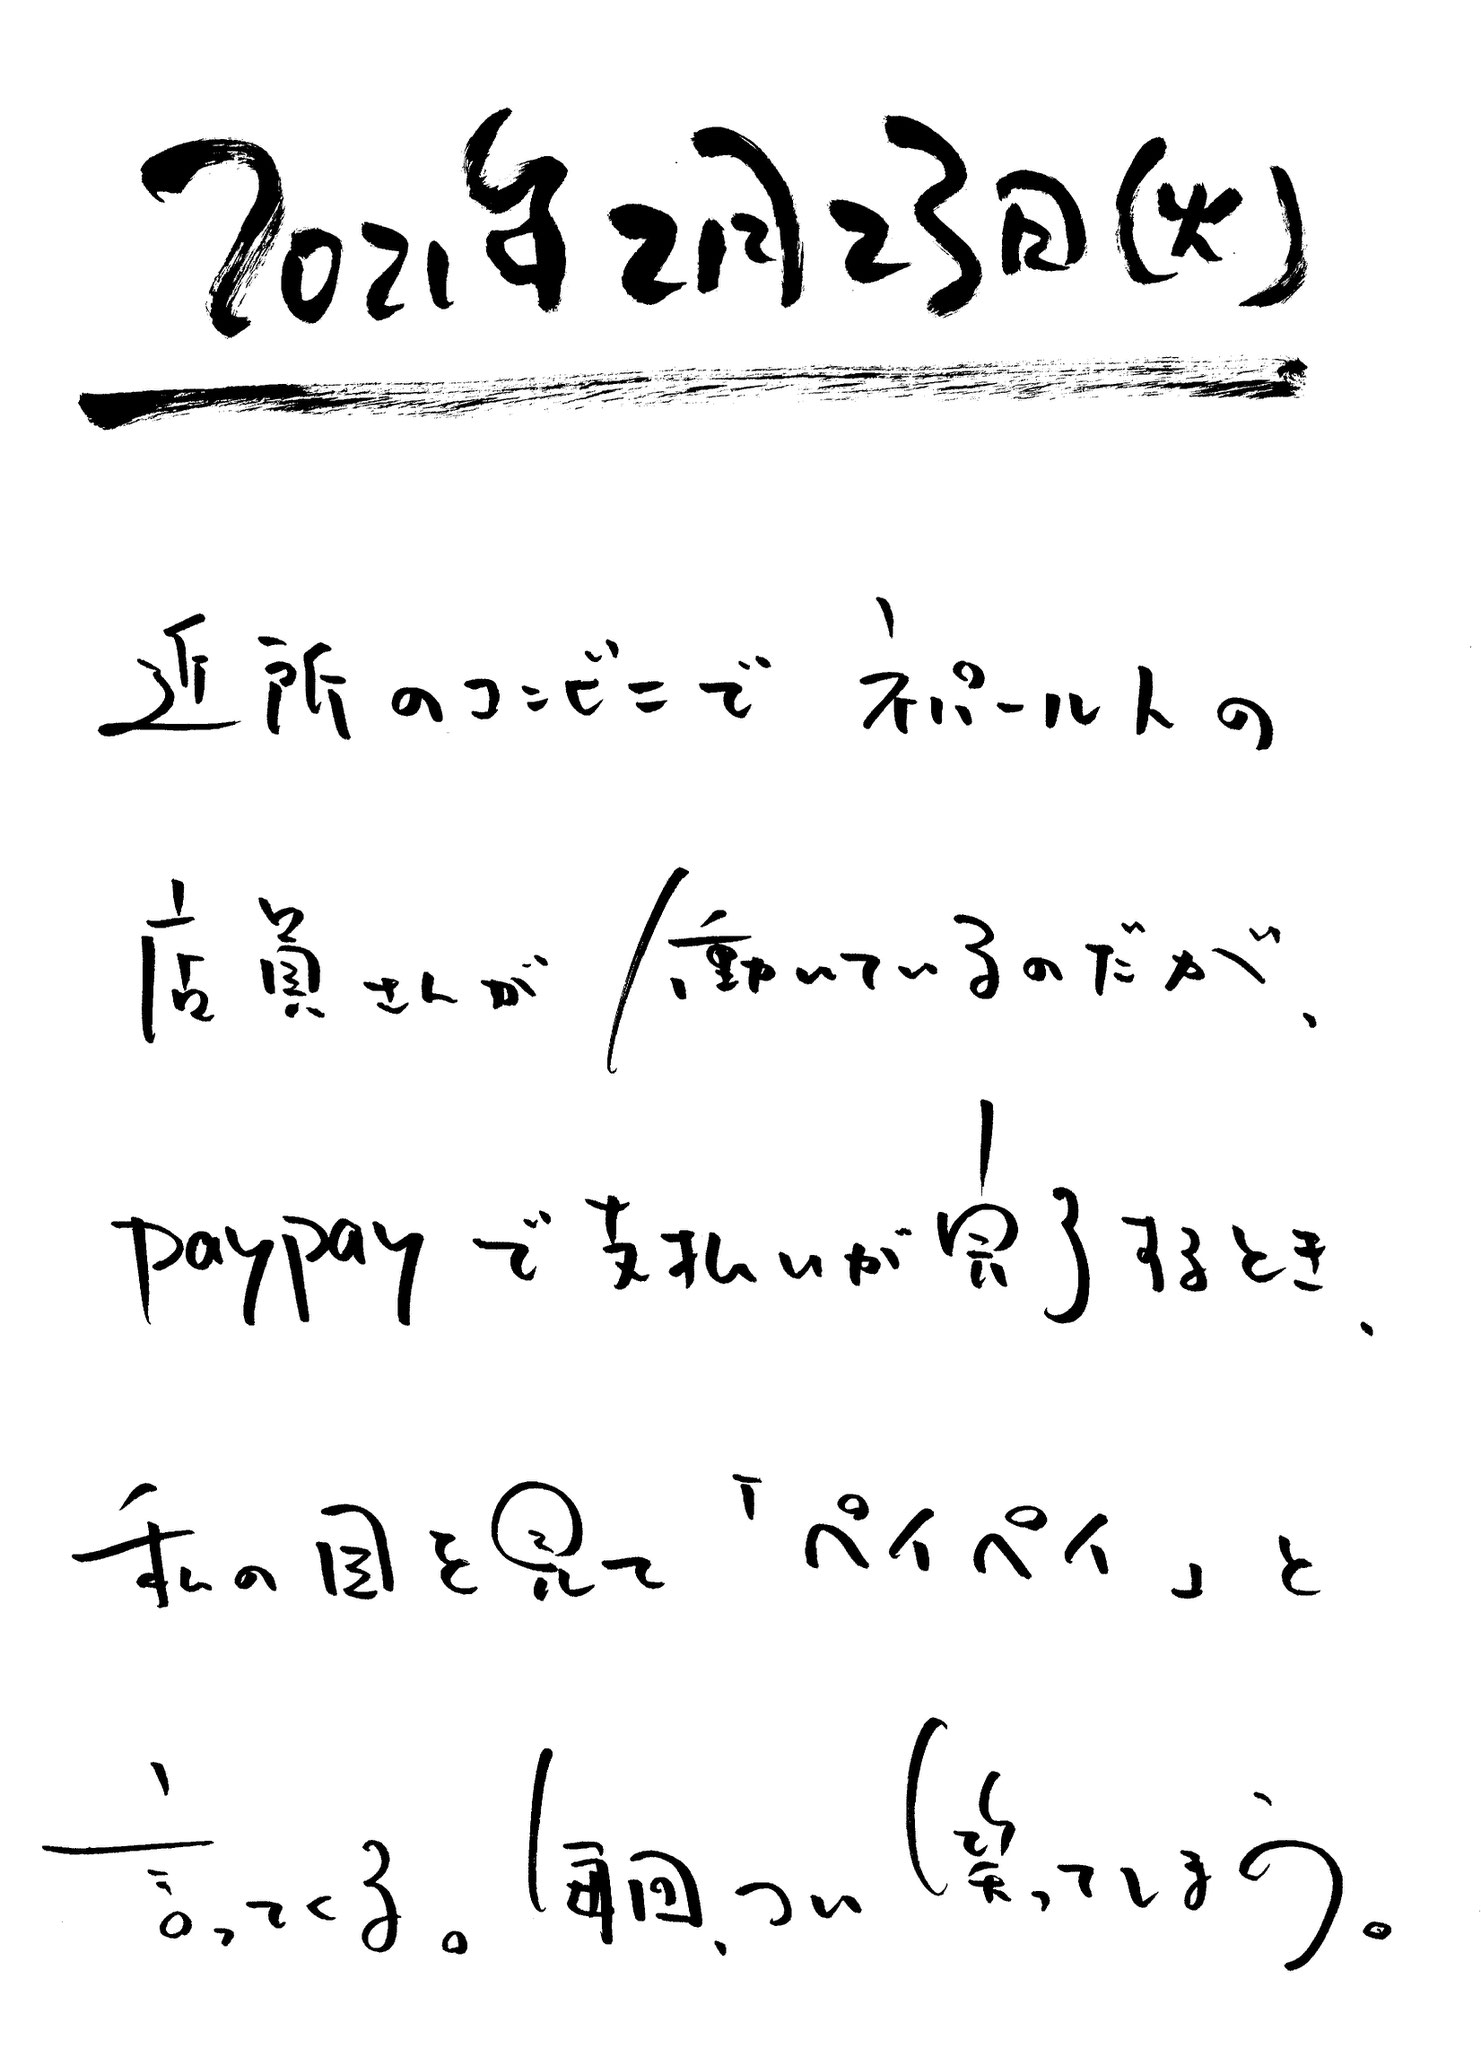 2021年2月23日(火)
近所のコンビニでネパール人の
店員さんが働いているのだが、
paypayで支払いが完了するとき、
私の目を見て「ペイペイ」と
言ってくる。毎回、つい笑ってしまう。